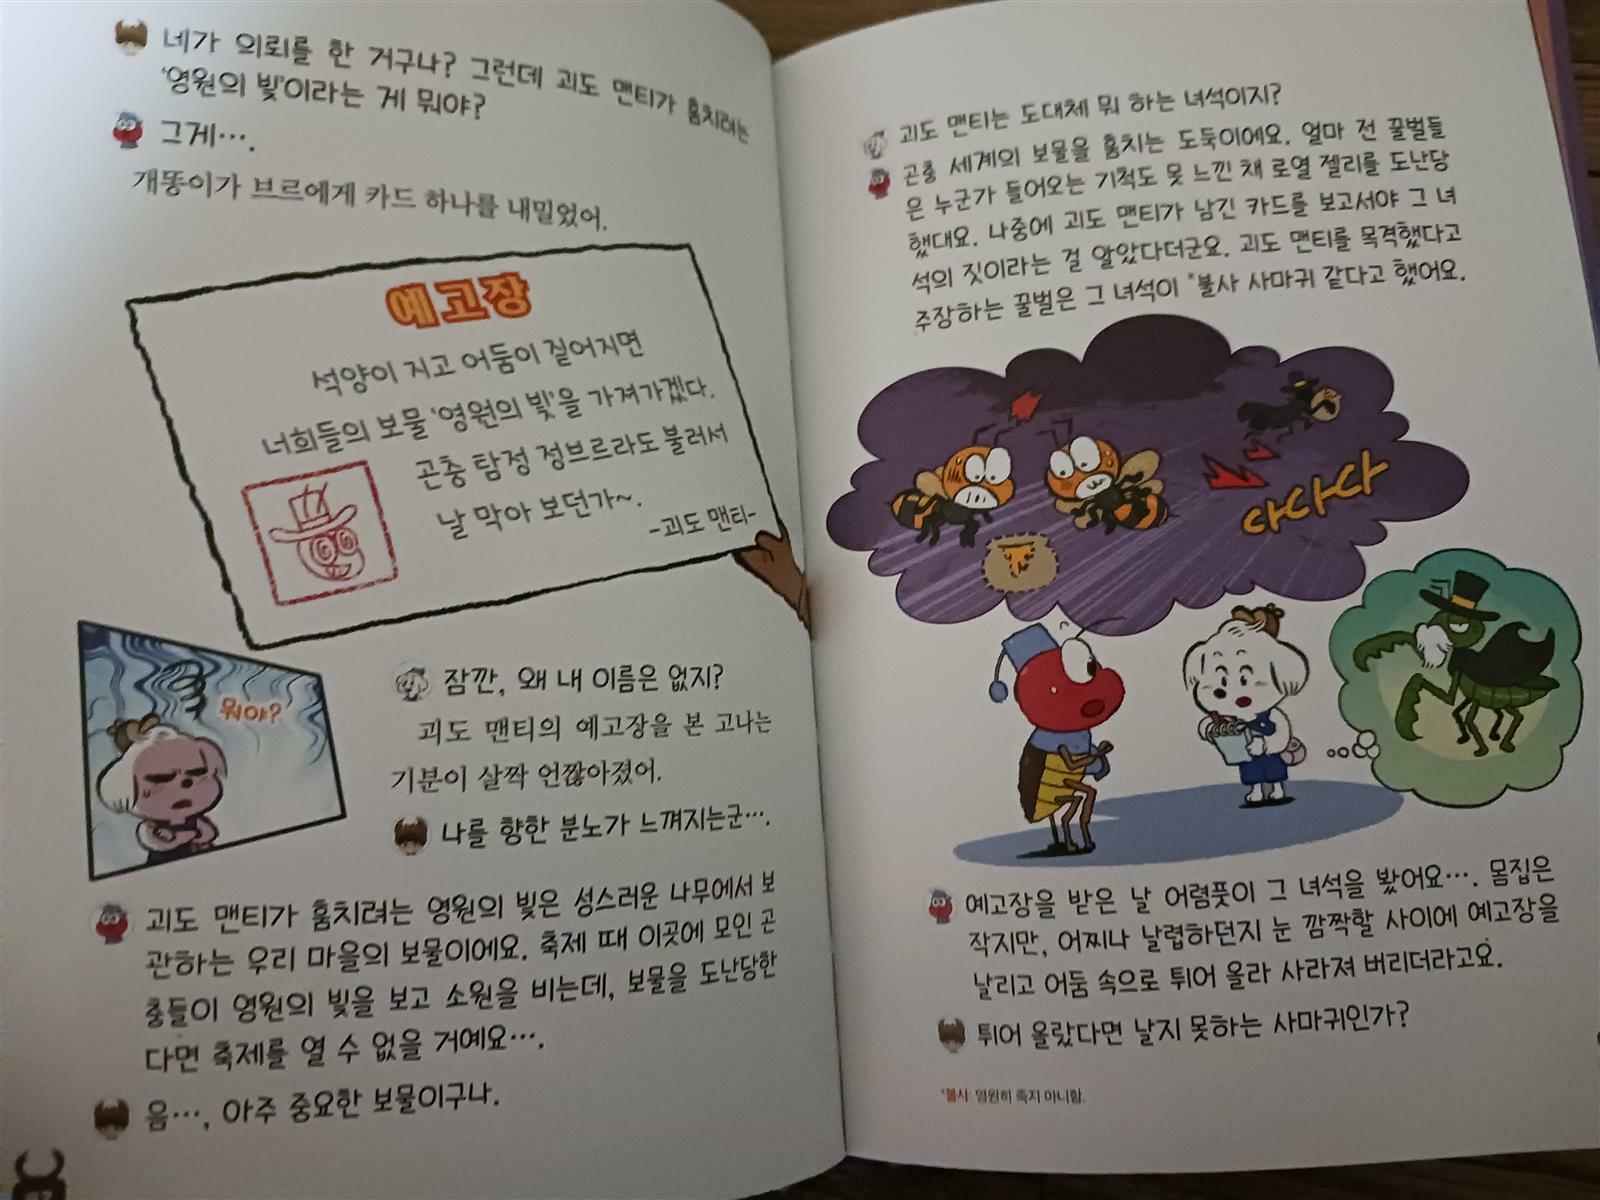 네가 의뢰를 한 거구나? 그런데 괴도 맨티가 훔치려는
'영원의 빛'이라는 게 뭐야?
그게….
개똥이가 브르에게 카드 하나를 내밀었어.
예고장
석양이 지고 어둠이 짙어지면
너희들의 보물 '영원의 빛'을 가져가겠다.
곤충 탐정 정브르라도 불러서
날 막아 보던가~.
-괴도 맨티-
뭐야?
잠깐, 왜 내 이름은 없지?
괴도 맨티의 예고장을 본 고나는
기분이 살짝 언짢아졌어.
나를 향한 분노가 느껴지는군….
괴도 맨티가 훔치려는 영원의 빛은 성스러운 나무에서 보
관하는 우리 마을의 보물이에요. 축제 때 이곳에 모인 곤
충들이 영원의 빛을 보고 소원을 비는데, 보물을 도난당한
다면 축제를 열 수 없을 거예요….
음…, 아주 중요한 보물이구나.
괴도 맨티는 도대체 뭐 하는 녀석이지?
곤충 세계의 보물을 훔치는 도둑이에요. 얼마 전 꿀벌들
은 누군가 들어오는 기척도 못 느낀 채 로열 젤리를 도난당
했대요. 나중에 괴도 맨티가 남긴 카드를 보고서야 그 녀
석의 짓이라는 걸 알았다더군요. 괴도 맨티를 목격했다고
주장하는 꿀벌은 그 녀석이 *불사 사마귀 같다고 했어요.
사사삭
예고장을 받은 날 어렴풋이 그 녀석을 봤어요…. 몸집은
작지만, 어찌나 날렵하던지 눈 깜짝할 사이에 예고장을
날리고 어둠 속으로 튀어 올라 사라져 버리더라고요.
튀어 올랐다면 날지 못하는 사마귀인가?
*불사: 영원히 죽지 아니함.